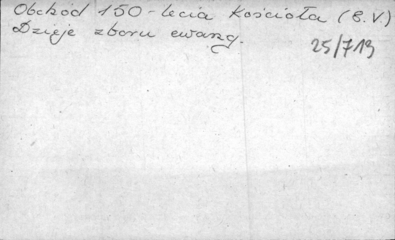 Obchód 150-lecia Kościoła (B.V.)
Dzieje zboru ewang.
25/713